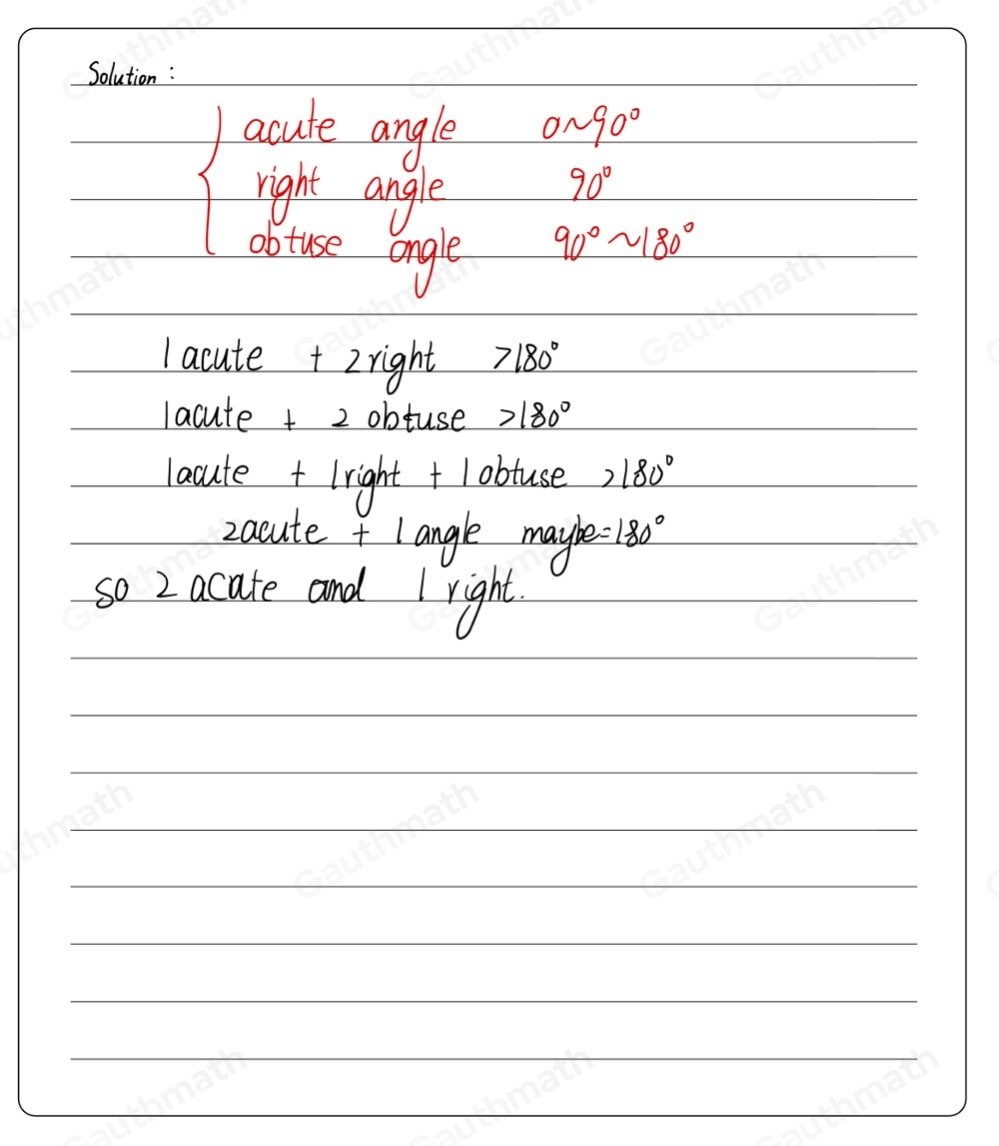 Solution :
acute angle 0~90°
right angle 90°
obtuse angle 90°~180°
1 acute + 2 right >180°
1 acute + 2 obtuse >180°
1 acute + 1 right + 1 obtuse >180°
2 acute + 1 angle maybe=180°
so 2 acute and 1 right.
Gauthmath